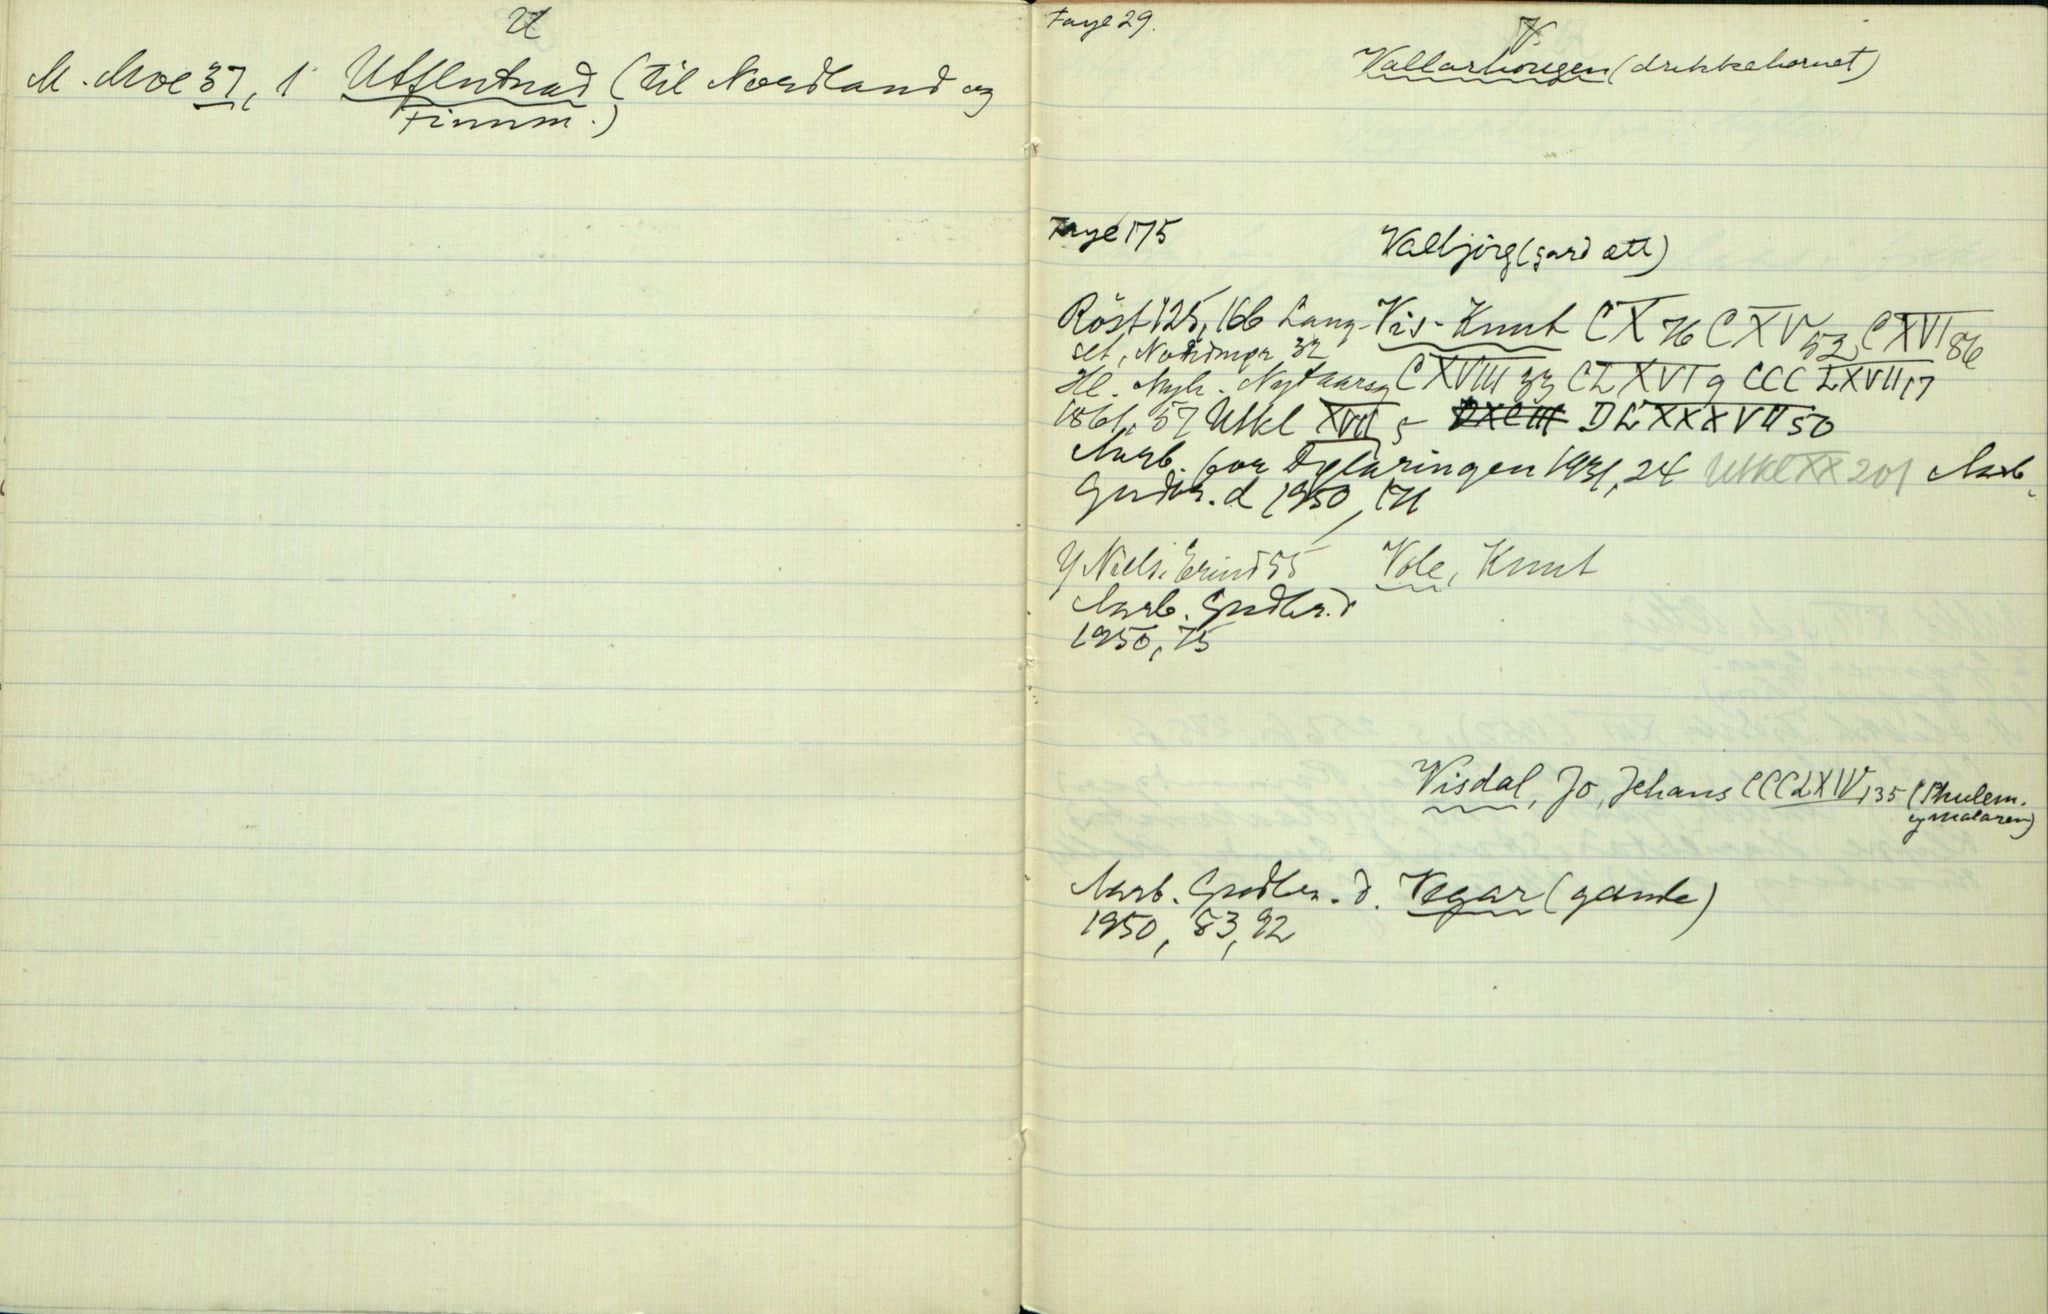 U
M. Moe 37, 1 Utflutnad (til Nordland og
Finnm.)
Faye 29.
V.
Vallarhougen (drikkehornet)
Faye 175
Valbjörg (gard ætt)
Röst 125, 166 Lang- Vis-Knut CX 76 CXV 52, CXVI 86
set, Nordmør 32
Ill. Nyh. Nytaarsg CXVIII 33 CLXVI 9 CCCLXVII 17
1861, 57 Utkl XVII 5 DXCIII DLXXXVII 50
Aarb. for Dølaringen 1931, 24 Utkl XX 201 Aarb.
Gudbr.d 1950, 171
Y Niels. Erind 55 Vole, Knut
Aarb. Gudbr.d
1950, 75
Visdal, Jo, Jehans CCCLXIV 135 (Skulem.
og malaren)
Aarb. Gudbr. d. Vegar (gamle)
1950, 83, 92